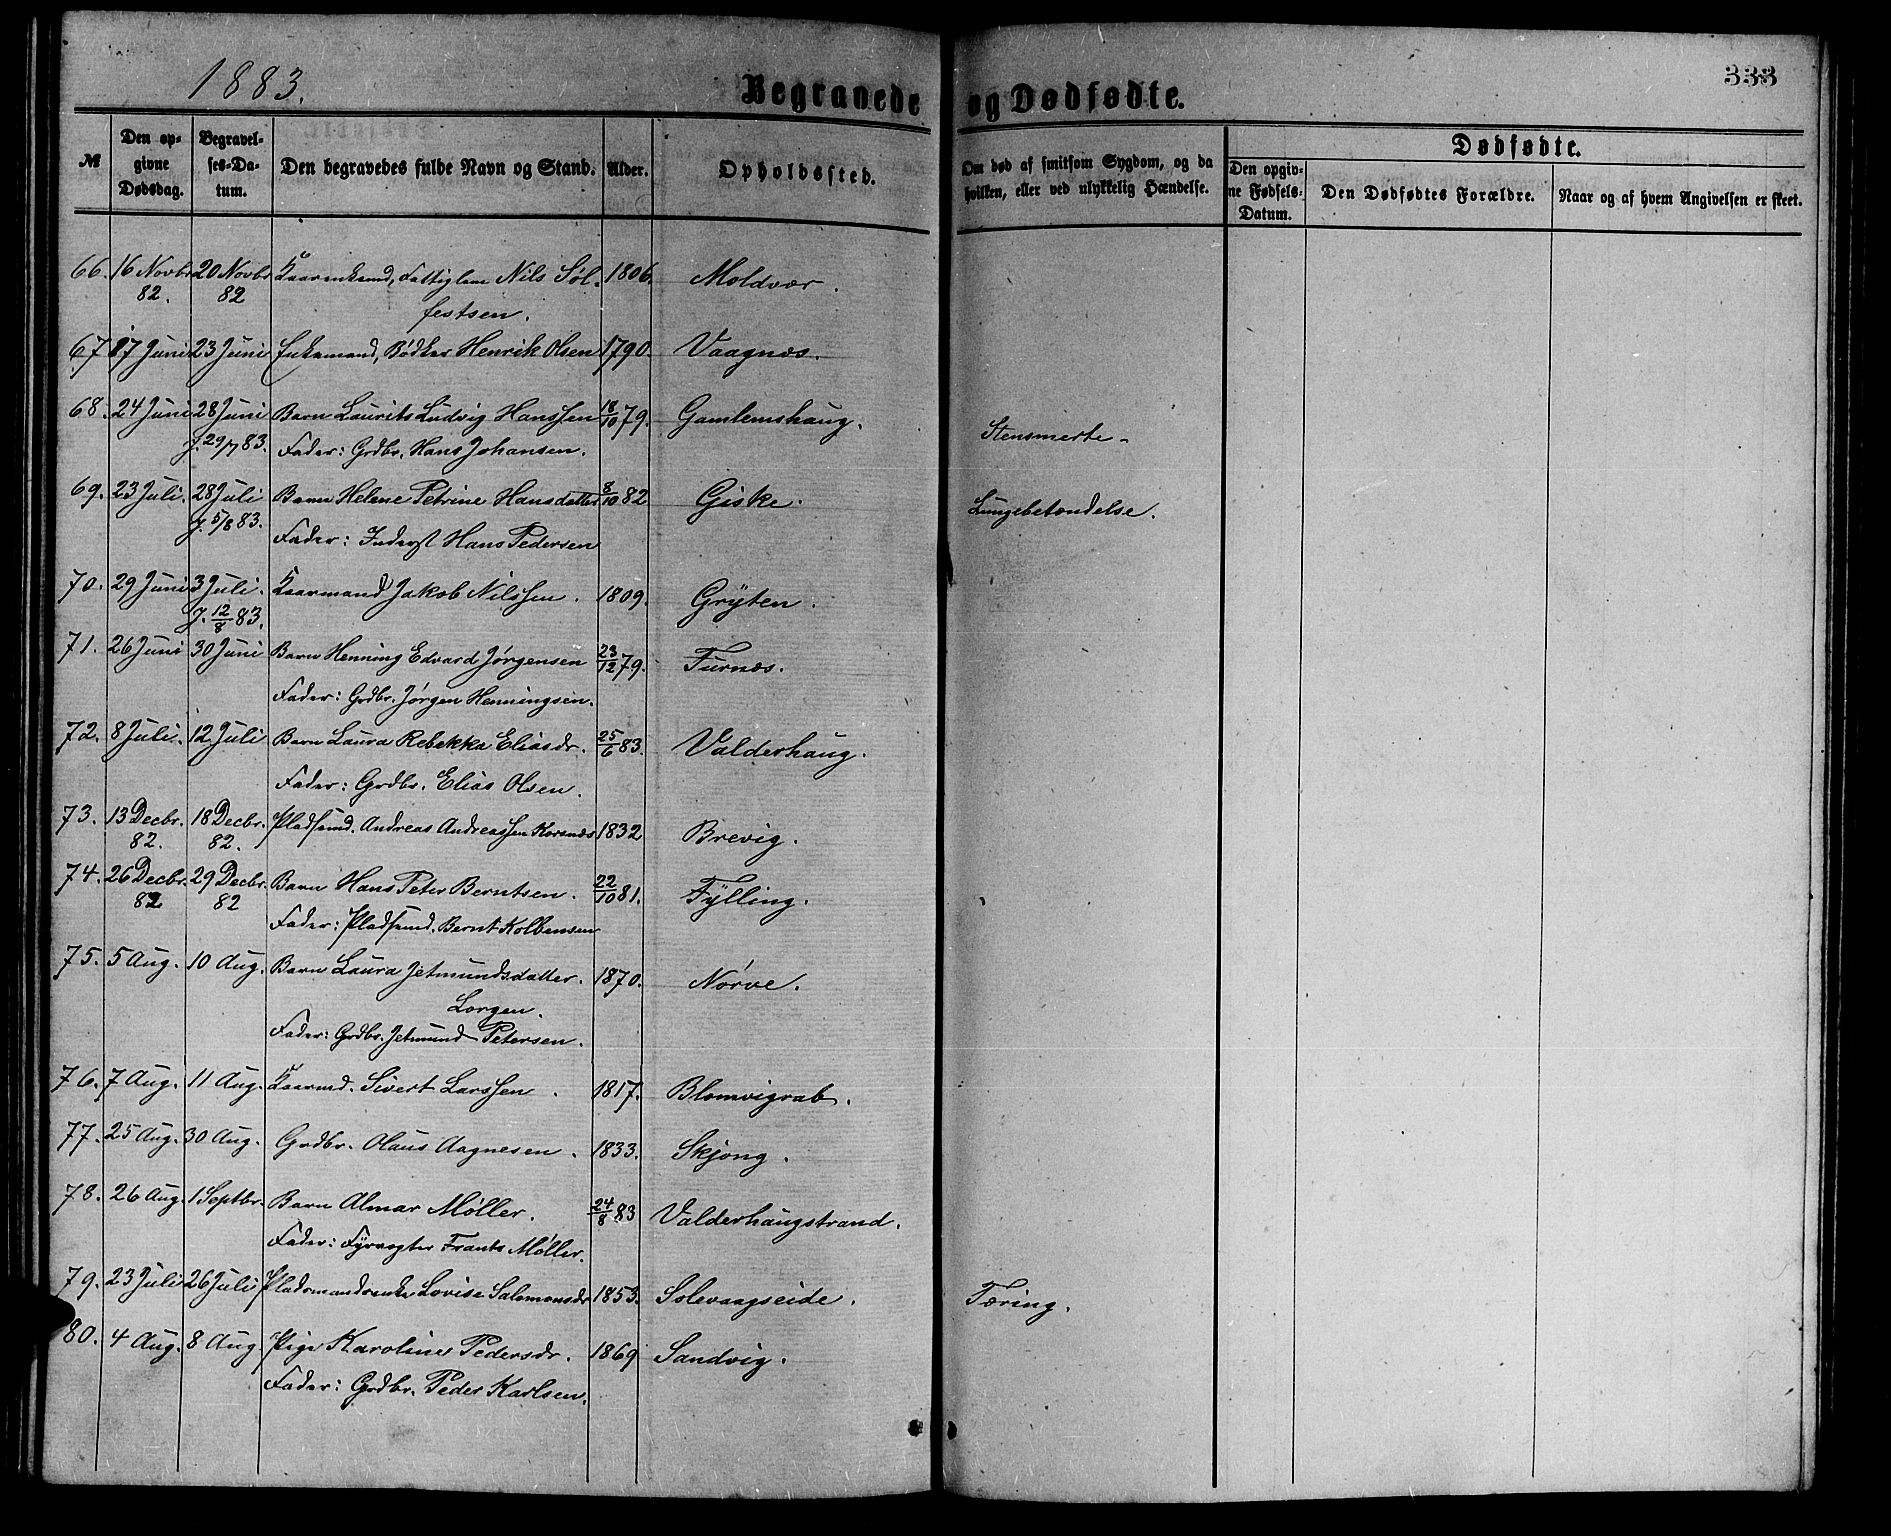 1883.
Begravede og Dødfødte.
333
№
Den opgivne Dødsdag.
Begravelses-Datum.
Den begravedes fulde Navn og Stand.
Alder.
Opholdssted.
Om død af smitsom Sygdom, og da hvilken, eller ved ulykkelig Hændelse.
Dødfødte.
Den opgivne Fødsels-Datum.
Den Dødfødtes Forældre.
Naar og af hvem Angivelsen er skeet.
66. 16 Novbr 20 Novbr Fattiglem Nils Søl- 1806. Moldvær.
82. 82 festsen.
67 17 Juni 23 Juni Enkemand, Bødker Henrik Olsen 1790. Vaagnæs.
68. 24 Juni 28 Juni Barn Laurits Ludvig Hanssen 18/10 79. Gamlemshaug. Stensmerte
J. 29/7 83. Fader: Grdbr. Hans Johansen.
69. 23 Juli. 28 Juli Barn Helene Petrine Hansdatter 8/10 82 Giske. Lungebetændelse.
J. 5/8 83. Fader: Inderst Hans Pedersen
70. 29 Juni 3 Juli. Kaarmand Jakob Nilssen. 1809. Grÿten.
J. 12/8 83.
71. 26 Juni 30 Juni Barn Henning Edvard Jørgensen 23/12 79. Furnæs.
Fader: Grdbr. Jørgen Henningsen.
72. 8 Juli. 12 Juli Barn Laura Rebekka Eliasdr. 25/6 83. Valderhaug.
Fader: Grdbr. Elias Olsen.
73. 13 Decbr. 18 Decbr. Pladsmd. Andreas Andreassen Korsnæs 1832 Brevig.
82. 82.
74. 26 Decbr. 29 Decbr. Barn Hans Peter Berntsen. 22/10 81. Fÿlling.
82 82 Fader: Pladsmd. Bernt Kolbensen
75. 5 Aug. 10 Aug. Barn Laura Jetmundsdatter. 1870. Nørve.
Lorgen.
Fader: Grdbr. Jetmund Petersen.
76. 7 Aug. 11 Aug. Kaarmd. Sivert Larssen. 1817. Blomvigrab.
77. 25 Aug. 30 Aug. Grdbr. Olaus Aagnesen. 1833. Skjong.
78. 26 Aug. 1 Septbr. Barn Almar Møller. 24/8 83 Valderhaugstrand.
Fader: Fyrvogter Frants Møller.
79. 23 Juli 26 Juli Pladsmandsenke Lovise Salomonsdr 1853. Solevaagseide. Tæring.
80. 4 Aug. 8 Aug. Pige Karoline Pedersdr. 1869 Sandvig.
Fader: Grdbr. Peder Karlsen.